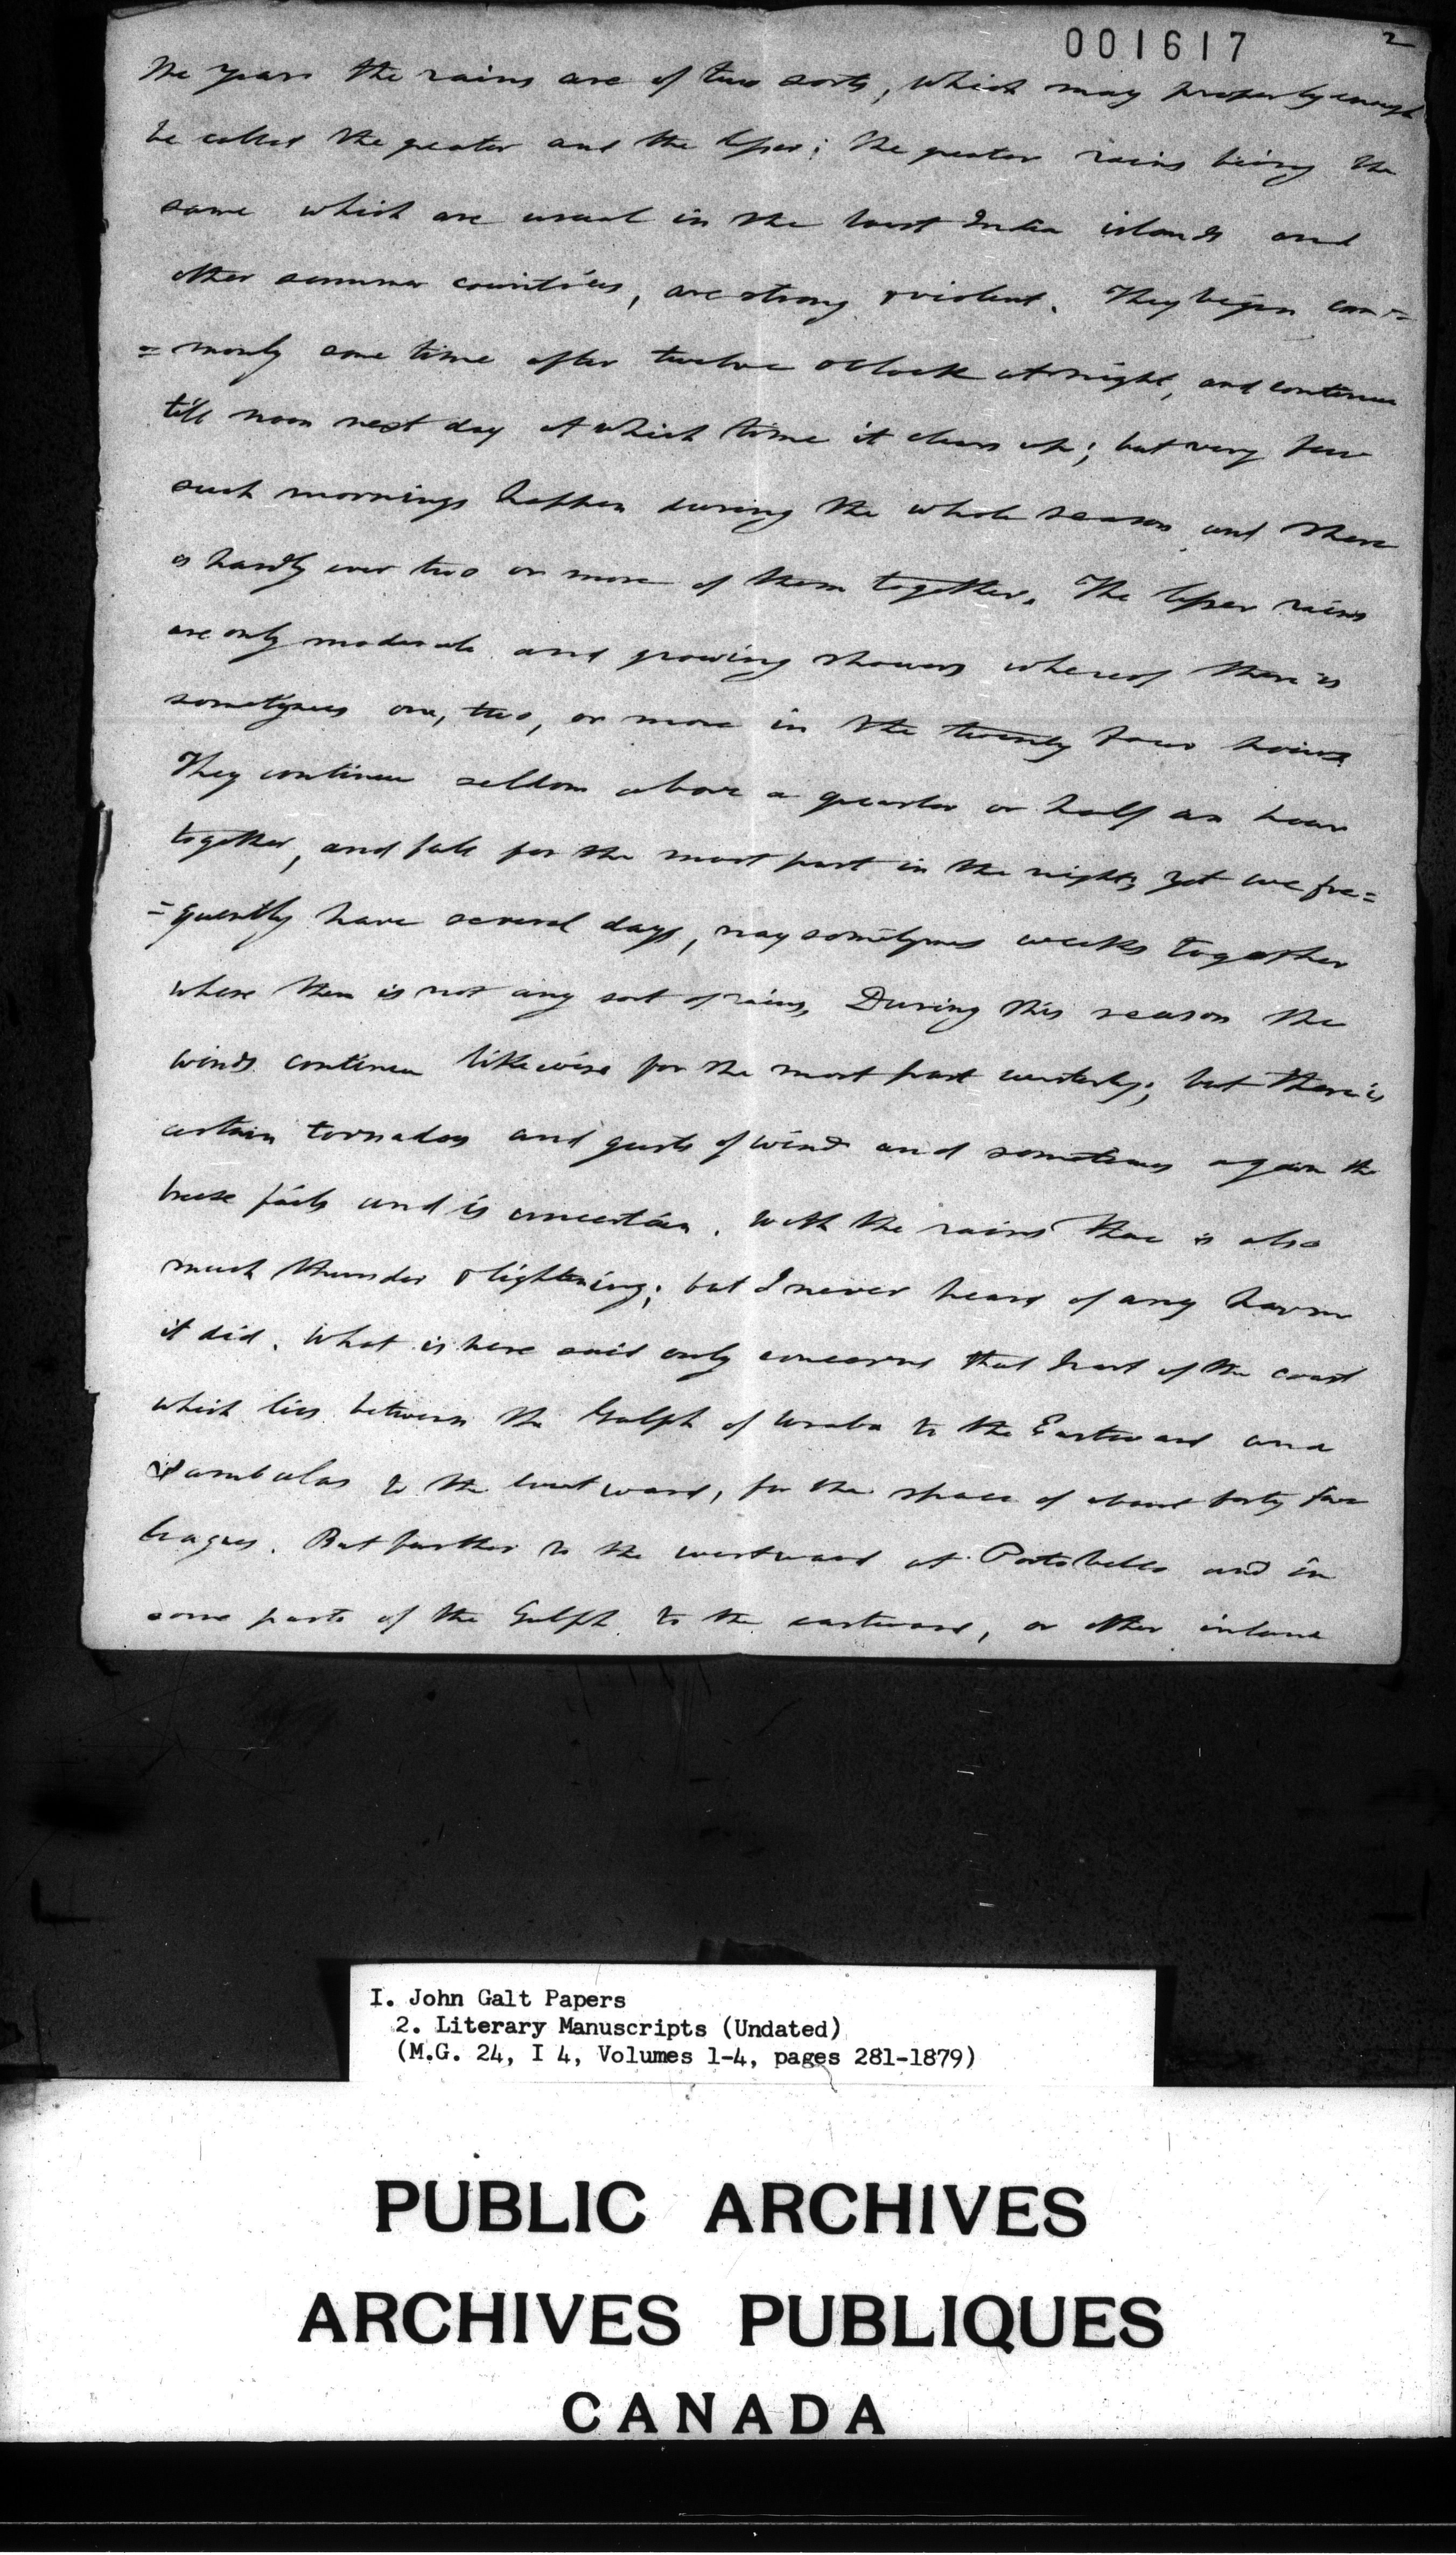 001617
2
the years the rains are of two sorts, which may properly enough
be called the greater and the lesser; the greater rains being the
same which are usual in the West India islands and
other summer countries, are strong & violent. They begin com=
=monly some time after twelve oClock at night, and continue
till noon next day at which time it clears up; but very few
such mornings happen during the whole season and there
is hardly ever two or more of them together. The lesser rains
are only moderate and growing showers whereof there is
sometymes one, two, or more in the twenty four hours
They continue seldom above a quarter or half an hour
together, and fall for the most part in the night; yet we fre=
=quently have several days, nay sometymes weeks together
where there is not any sort of rains, During this season the
winds continue likewise for the most part westerly; but there is
certain tornados and gusts of wind and sometimes again the
breese fails and is uncertain. With the rains there is also
much thunder & lightening; but I never heard of any harm
it did. What is here said only concerns that part of the coast
which lies between the Gulph of Uraba to the Eastward and
Sambalas to the westward, for the space of about forty five
leagues. But further to the westward at Portobello and in
some parts of the Gulph to the eastward, or other inland
I. John Galt Papers
2. Literary Manuscripts (Undated)
(M.G. 24, I 4, Volumes 1-4, pages 281-1879)
PUBLIC ARCHIVES
ARCHIVES PUBLIQUES
CANADA